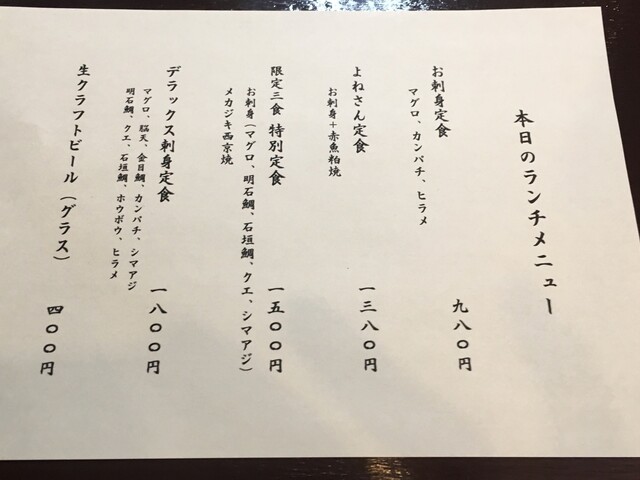 本日のランチメニュー
お刺身定食 九八〇円
マグロ、カンパチ、ヒラメ
よねさん定食 一三八〇円
お刺身+赤魚粕焼
限定三食 特別定食 一五〇〇円
お刺身(マグロ、明石鯛、石垣鯛、クエ、シマアジ)
メカジキ西京焼
デラックス刺身定食 一八〇〇円
マグロ、脳天、金目鯛、カンパチ、シマアジ
明石鯛、クエ、石垣鯛、ホウボウ、ヒラメ
生クラフトビール(グラス) 四〇〇円